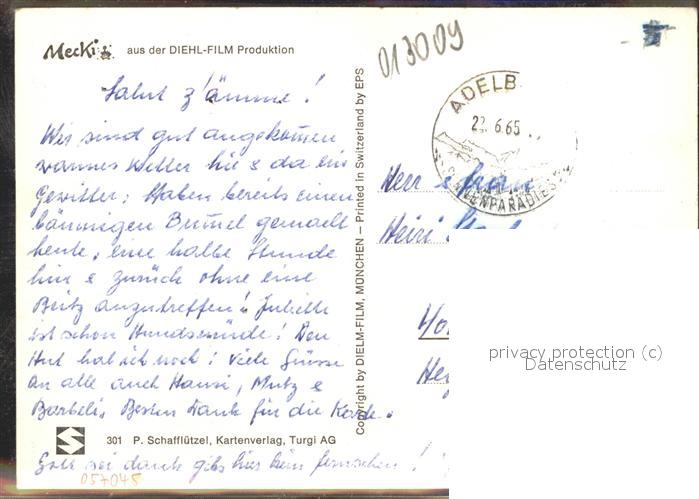 Mecki aus der DIEHL-FILM Produktion
013009
Salut z'ämme!
Wir sind gut angekommen
warmes Wetter hie & da ein
Gewitter; Haben bereits einen
bäumigen Bummel gemacht
heute, eine halbe Stunde
hin & zurück ohne eine
Beiz anzutreffen! Juliette
ist schon Hundsmüde! Den
Hut hab ich noch! Viele Grüsse
an alle auch Hansi, Mutz &
Barbeli. Besten Dank für die Karte.
301 P. Schafflützel, Kartenverlag, Turgi AG
Gott sei dank gibs hier kein fernsehen!
057045
Copyright by DIELM-FILM, MÜNCHEN – Printed in Switzerland by EPS
ADELB
22. 6.65
Herr & Frau
Heiri
privacy protection (c)
Datenschutz